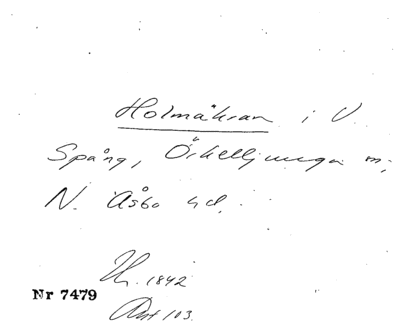 Holmåkran i V.
Spång, Örkelljunga m;
N. Åsbo hd.
1842
Nr 7479
103.